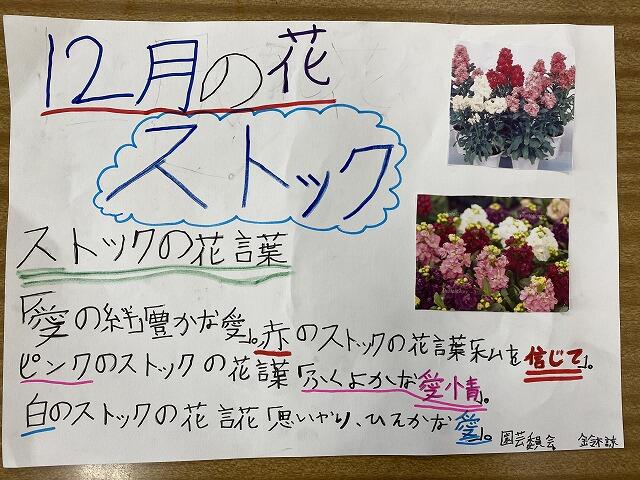 12月の花
ストック
ストックの花言葉
「愛の絆」豊かな愛」。赤のストックの花言葉 私を信じて」。
ピンクのストックの花言葉「ふくよかな愛情」。
白のストックの花言花「思いやり、ひそかな愛」。
園芸委員会